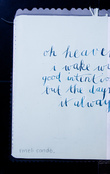 oh heave
i wake w
good intent
but the day
it alway